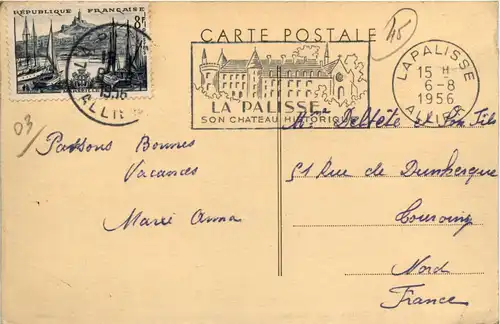 RÉPUBLIQUE FRANÇAISE
8F
MARSEILLE
1956
ALLIER
CARTE POSTALE
45
LA PALISSE
SON CHATEAU HISTORIQUE
LAPALISSE
15 H
6-8
1956
ALLIER
03
Passons Bonnes
Vacances
Marie Anna
Mme Deltête et Son Fils
51 Rue de Dunkerque
Tourcoing
Nord
France